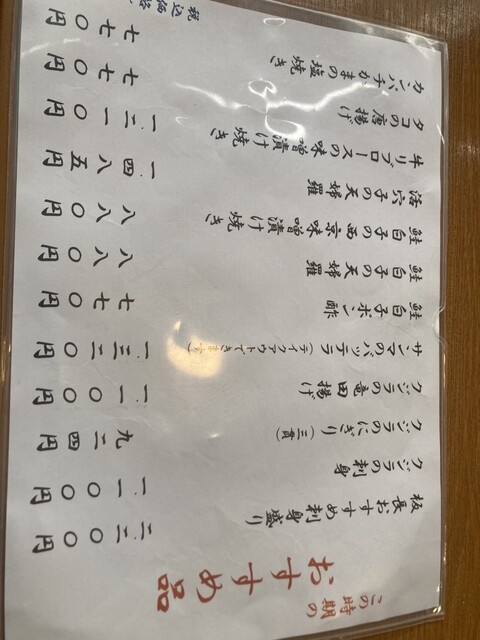 この時期の
おすすめ品
板長おすすめ刺身盛り
クジラの刺身 一、一〇〇円
クジラのにぎり 九二四円
クジラの竜田揚げ 一、一〇〇円
サンマのバッテラ(テイクアウトできます) 一、三二〇円
鮭白子ポン酢 七七〇円
鮭白子の天婦羅 八八〇円
鮭白子の西京味噌漬け焼き 八八〇円
活穴子の天婦羅 一、四八五円
牛リブロースの味噌漬け焼き 一、二一〇円
タコの唐揚げ 七七〇円
カンパチかまの塩焼き 七七〇円
税込価格